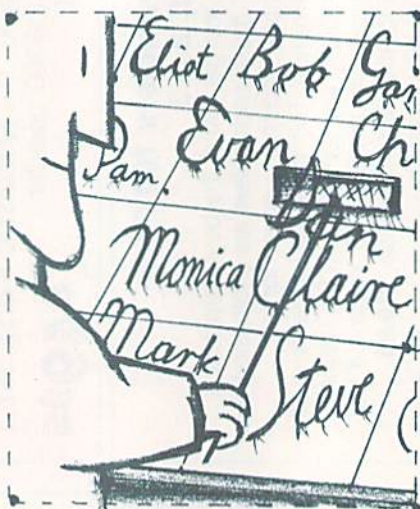 Eliot Bob
Pam. Evan Ch
Dan
Monica Claire
Mark Steve